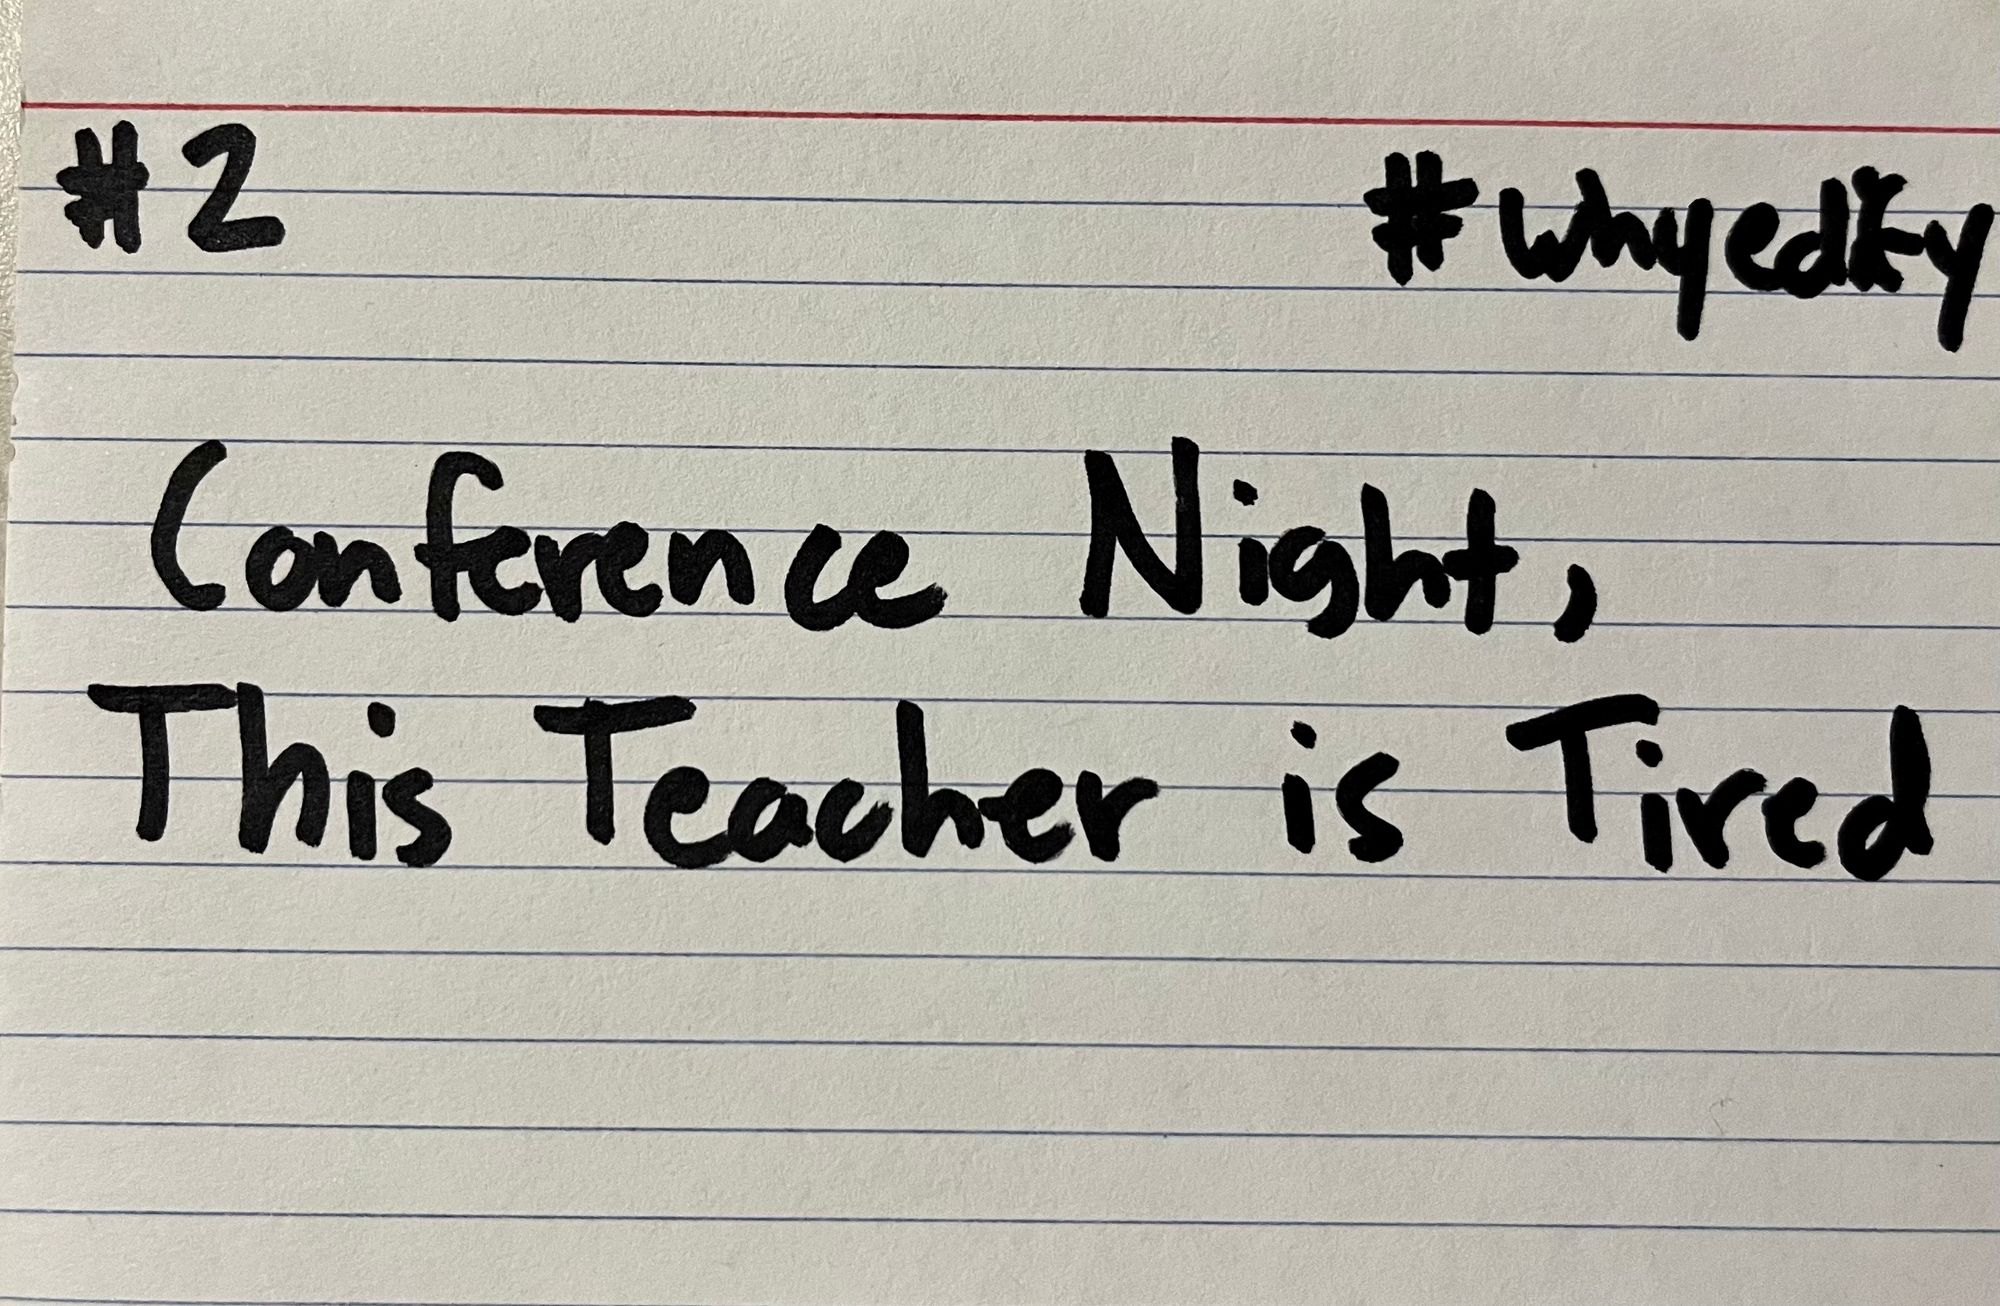 #2 #whyedky
Conference Night,
This Teacher is Tired